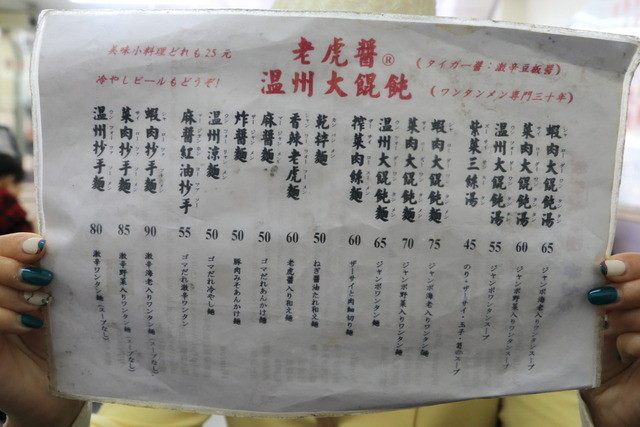 美味小料理どれも25元
冷やしビールもどうぞ!
老虎醬®
温州大餛飩
(タイガー醬:激辛豆板醬)
(ワンタンメン専門三十年)
蝦肉大餛飩湯 65 ジャンボ海老入りワンタンスープ
菜肉大餛飩湯 60 ジャンボ野菜入りワンタンスープ
温州大餛飩湯 55 ジャンボワンタンスープ
紫菜三絲湯 45 のり・ザーサイ・玉子・豚のスープ
蝦肉大餛飩麵 75 ジャンボ海老入りワンタン麺
菜肉大餛飩麵 70 ジャンボ野菜入りワンタン麺
温州大餛飩麵 65 ジャンボワンタン麺
榨菜肉絲麵 60 ザーサイと肉細切り麺
乾拌麵 50 ねぎ醬油たれ和え麺
香辣老虎麵 60 老虎醬入り和え麺
麻醬麵 50 ゴマだれあんかけ麺
炸醬麵 50 豚肉みそあんかけ麺
温州涼麵 50 ゴマだれ冷やし麺
麻醬紅油抄手 55 ゴマだれ激辛ワンタン
蝦肉抄手麵 90 激辛海老入りワンタン麺(スープなし)
菜肉抄手麵 85 激辛野菜入りワンタン麺(スープなし)
温州抄手麵 80 激辛ワンタン麺(スープなし)